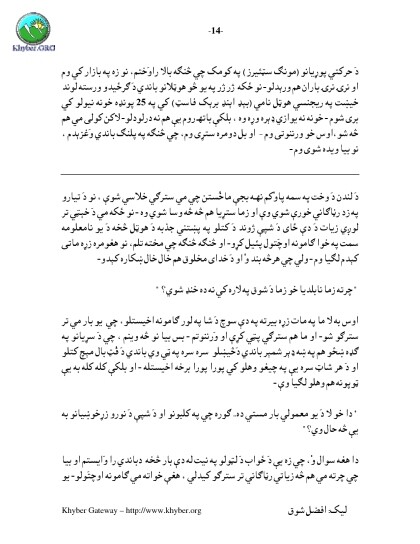 Khyber.ORG
-14-
دَ حرکتي پوړيانو (مونګ سټئيرز) په کومک چي څنګه بالا راوختم، نو زه په بازار کي وم
او نرۍ نرۍ باران هم ورېدلو- نو ځکه ژر ژر په يو څو هوټلانو باندي دَ ګرځېدو ورسته لوند
خيشت په ريجنسي هوټل نامي (بيډ اينډ برېک فاسټ) کي په 25 پونډه خونه نيولو کي
بری شوم - خونه نه يوازي ډېره وړه وه ، بلکې باتهـ روم يې هم نه درلودلو- لاکن کولی مي هم
څه شو، اوس خو ورننوتی وم - او بل دومره ستړی وم، چي څنګه په پلنګ باندي وغزېدم ،
نو بيا ويده شوی وم-
دَ لندن دَ وخت په سمه پاوکم نهه بجې ماښستن چي مي سترګي خلاسي شوې ، نو دَ تيارو
په زړه رڼاګاني خورې شوي وې او زما ستړيا هم څه څه وسا شوې وه - نو ځکه مي دَ خېټي تر
لوږي زيات دَ دې ځای دَ شپې ژوند دَ کتلو په پښتني جذبه دَ هوټل څخه دَ يو نامعلومه
سمت په خوا ګامونه اوچتول پئيل کړو- او څنګه څنګه چي مخته تلم، نو هغومره زړه ماتی
کېدم لګيا وم - ولي چي هر څه بند وُ او دَ خدای مخلوق هم خال خال ښکاره کېدو-
"چرته زما نابلديا خو زما دَ شوق په لاره کي نه ده خنډ شوې؟ "
اوس به لا ما په مات زړه بيرته په دې سوچ دَ شا په لور ګامونه اخيستلو ، چي يو بار مي تر
سترګو شو- او ما هم سترګي پټي کړې او ورننوتم - بس بيا نو څه وينم ، چي دَ سړيانو په
ګډه ښځو هم په ښه ډېر شمېر باندي دَ څېښلو سره سره په ټي وي باندي دَ فُټ بال ميچ کتلو
او دَ هر شاټ سره يې په چيغو وهلو کي پورا پورا برخه اخيستله - او بلکې کله کله به يې
ټوپونه هم وهلو لګيا وې-
" دا خو لا دَ يو معمولي بار مستي ده، ګوره چي په کلبونو او دَ شپې دَ نورو زړخوښيانو به
يې څه حال وي؟ "
دا هغه سوال وُ، چي زه يې دَ ځواب دَ لټولو په نيت له دې بار څخه دباندي را وايستم او بيا
چي چرته مي هم څه زياتي رڼاګاني تر سترګو کېدلې ، هغې خوا ته مي ګامونه اوچتولو- يو
Khyber Gateway – http://www.khyber.org
ليک: افضل شوق